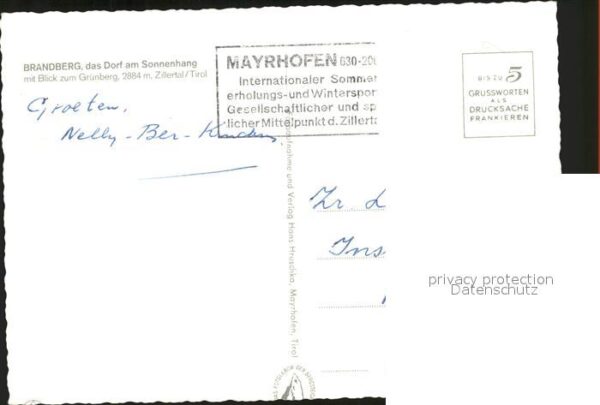 BRANDBERG, das Dorf am Sonnenhang
mit Blick zum Grünberg, 2884 m, Zillertal/Tirol
MAYRHOFEN 630-20
Internationaler Sommer
erholungs-und Winterspor
Gesellschaftlicher und sp
licher Mittelpunkt d. Zillert
BIS ZU 5
GRUSSWORTEN
ALS
DRUCKSACHE
FRANKIEREN
Groeten,
Nelly - Ber -
Aufnahme und Verlag Hans Hruschka, Mayrhofen, Tirol
Ins
privacy protection
Datenschutz